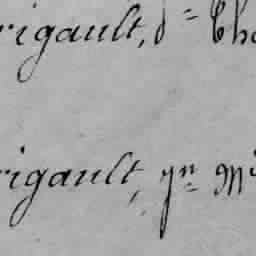 rigault, d= Cha
rigault, jn= M